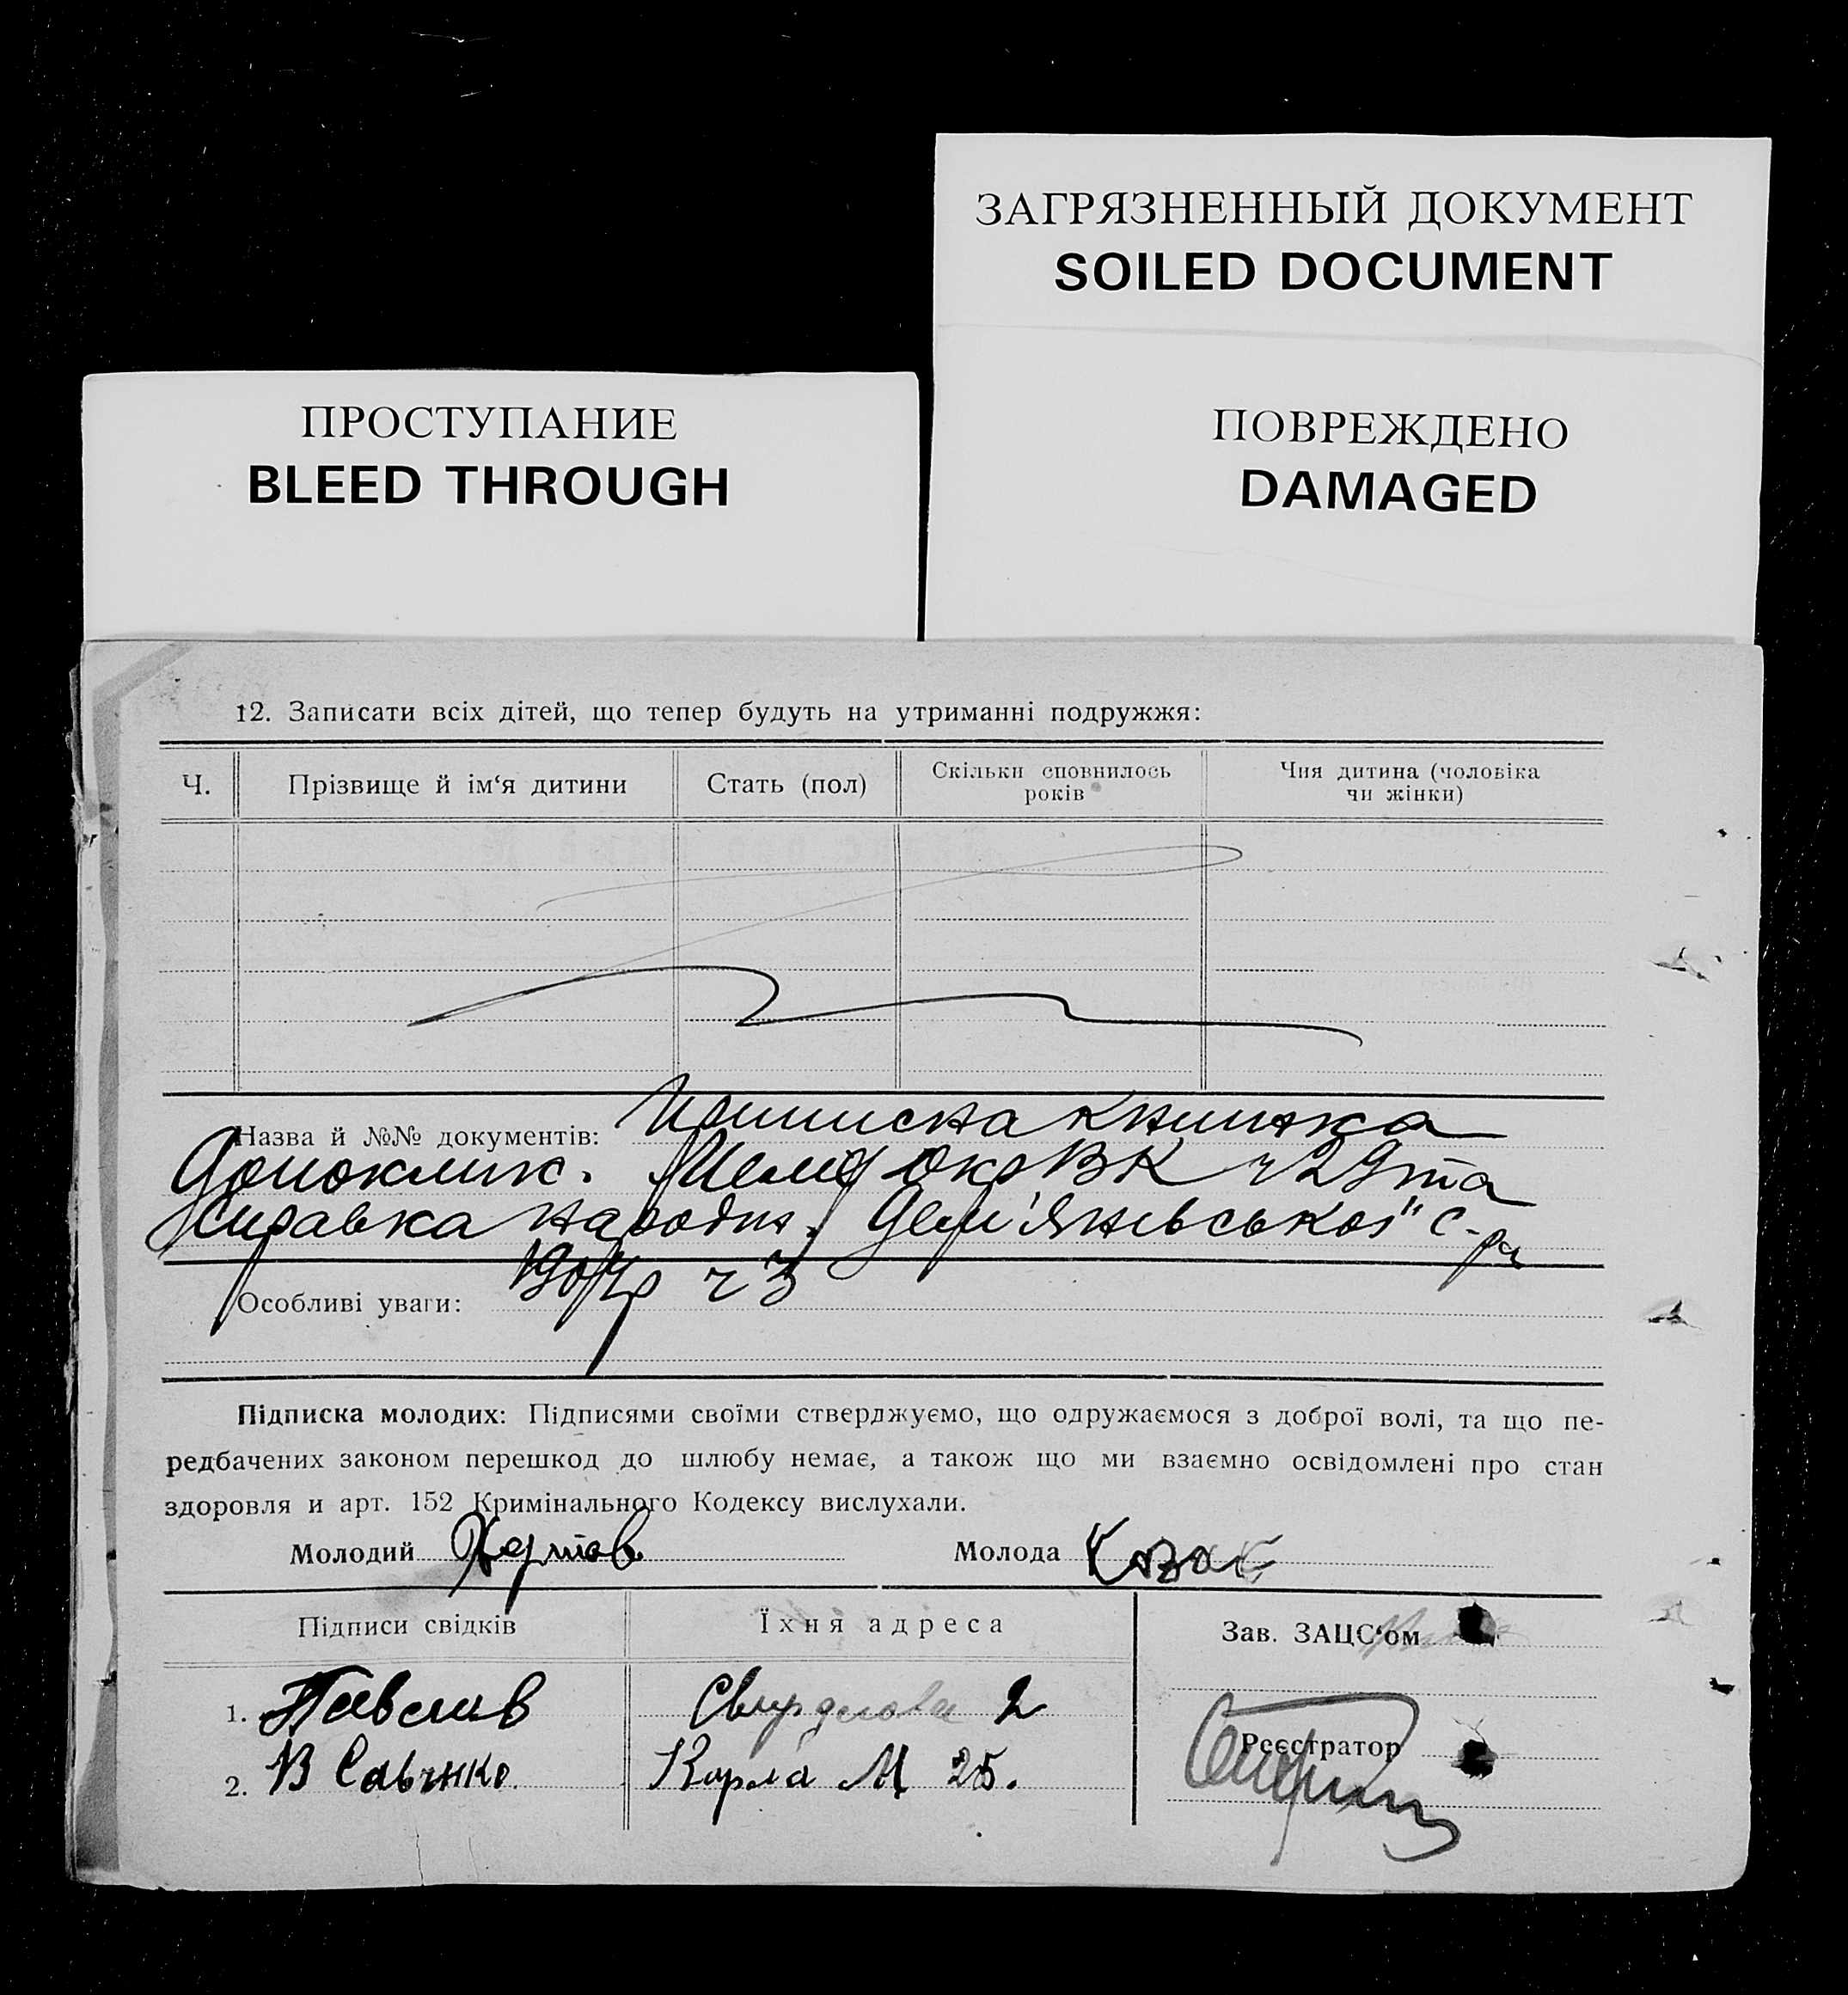 ЗАГРЯЗНЕННЫЙ ДОКУМЕНТ
SOILED DOCUMENT
ПРОСТУПАНИЕ
BLEED THROUGH
ПОВРЕЖДЕНО
DAMAGED
12. Записати всіх дітей, що тепер будуть на утриманні подружжя:
Ч.
Прізвище й ім‘я дитини
Стать (пол)
Скільки сповнилось
років
Чия дитина (чоловіка
чи жінки)
Назва й №№ документів: книжка
ОкрВК ч 29 та
народж. Дем'янівської с-ра
ч 3
Особливі уваги:
Підписка молодих: Підписями своїми стверджуємо, що одружаємося з доброї волі, та що пе-
редбачених законом перешкод до шлюбу немає, а також що ми взаємно освідомлені про стан
здоровля и арт. 152 Кримінального Кодексу вислухали.
Молодий
Молода Козак
Підписи свідків
Їхня адреса
Зав. ЗАЦС‘ом
1. Свердлова 2
2. В Савчнко. Карла М 25.
Реєстратор